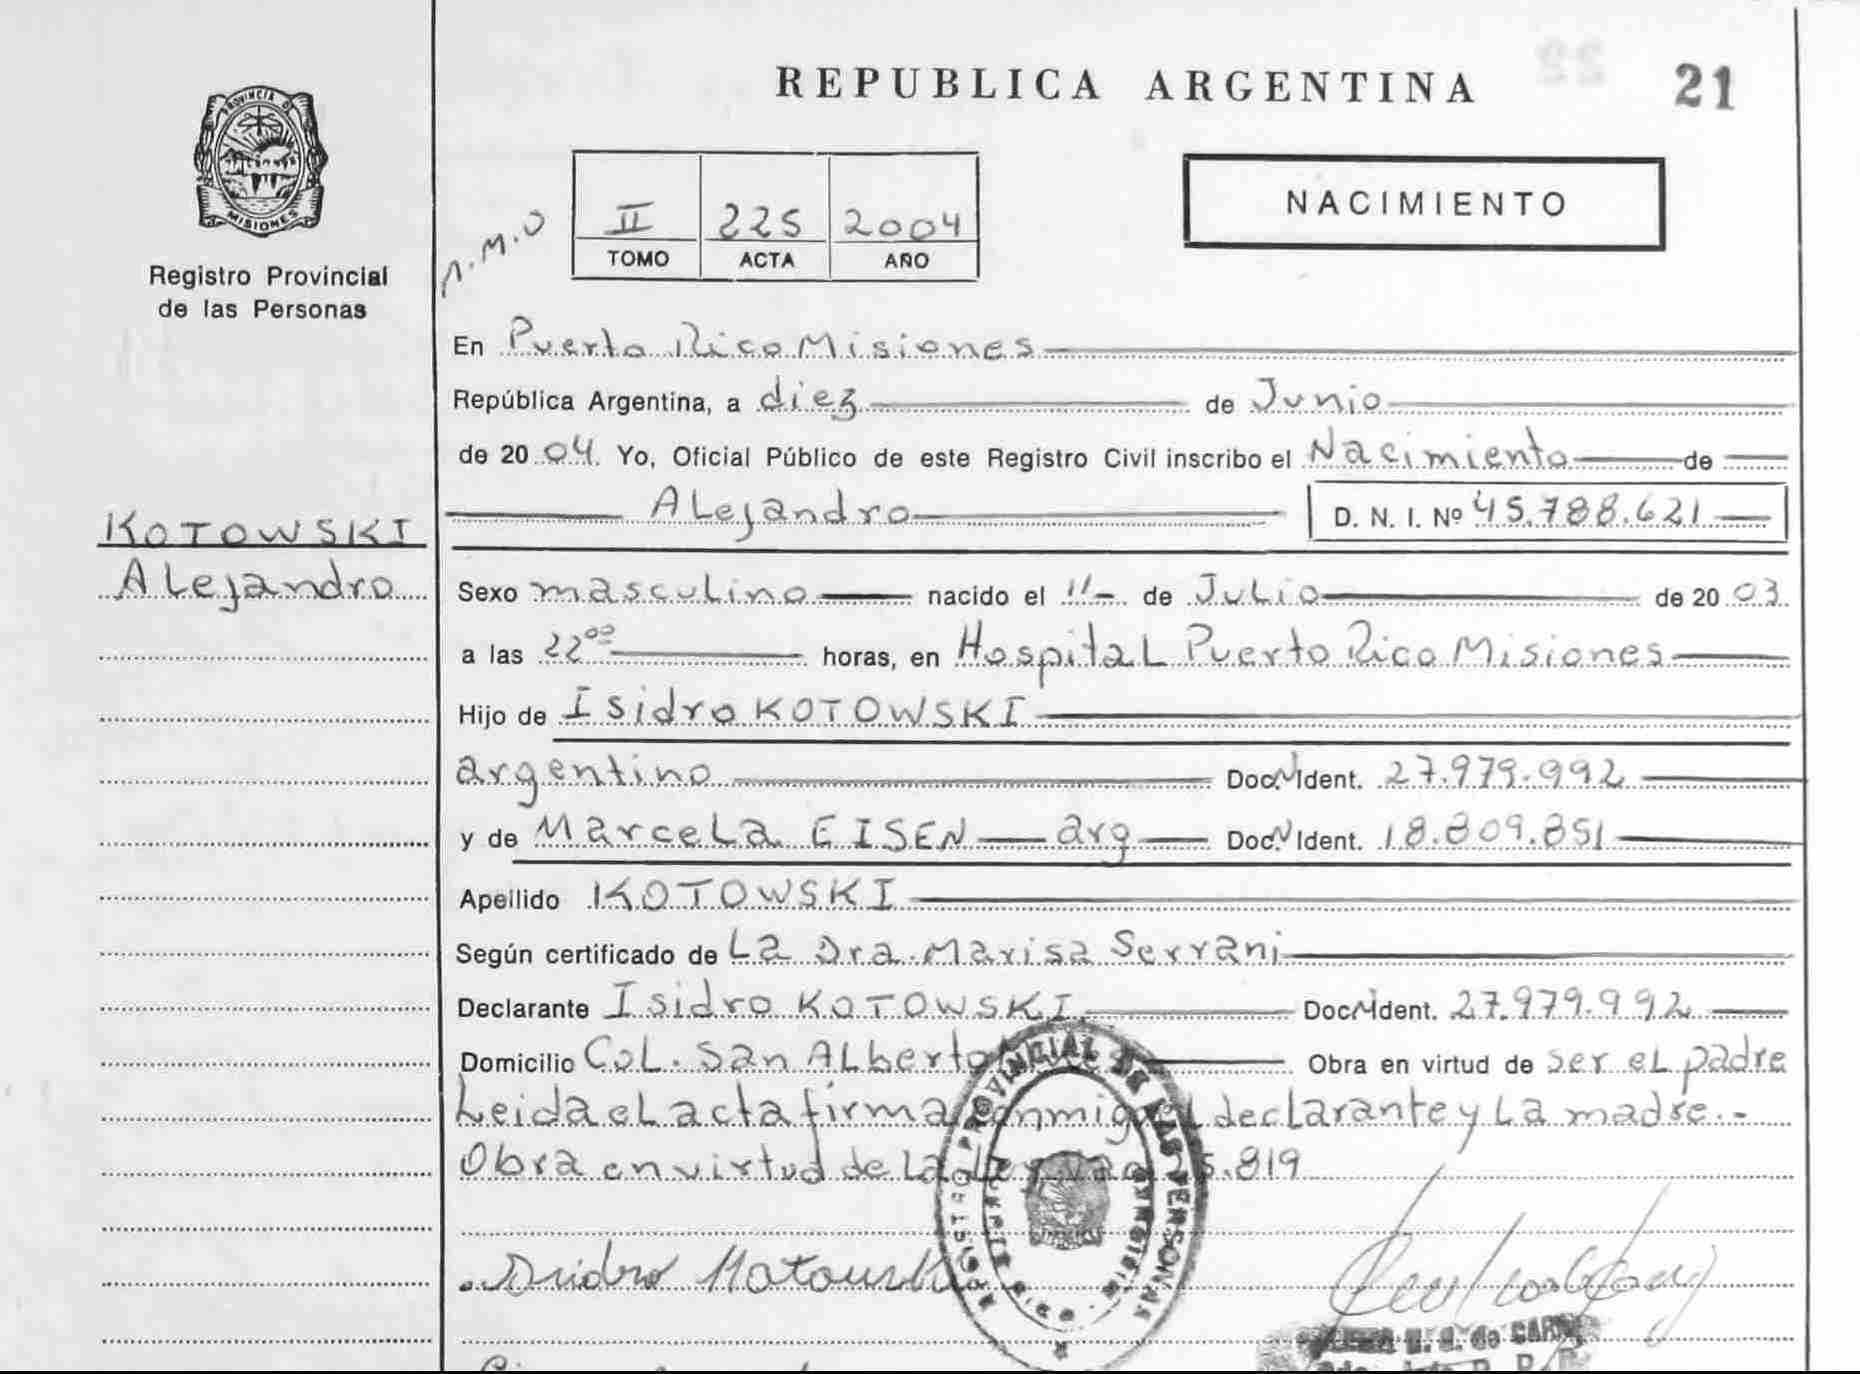 REPUBLICA ARGENTINA
21
PROVINCIA D
MISIONES
Registro Provincial
de las Personas
II 225 2004
TOMO ACTA AÑO
NACIMIENTO
En Puerto Rico Misiones
República Argentina, a diez de Junio
de 20 04. Yo, Oficial Público de este Registro Civil inscribo el Nacimiento de
Alejandro D. N. I. Nº 45.788.621
KOTOWSKI
Alejandro
Sexo masculino nacido el 11 de Julio de 20 03
a las 22⁰⁰ horas, en Hospital Puerto Rico Misiones
Hijo de Isidro KOTOWSKI
argentino Doc. Ident. 27.979.992
y de Marcela EISEN arg Doc. Ident. 18.809.851
Apellido KOTOWSKI
Según certificado de La Dra. Marisa Serrani
Declarante Isidro KOTOWSKI Doc. Ident. 27.979.992
Domicilio Col. San Alberto Obra en virtud de ser el padre
Leida el acta firma conmigo el declarante y La madre.-
Obra en virtud de La Ley 25.819
REGISTRO PROVINCIAL DE LAS PERSONAS
Isidro Kotowski